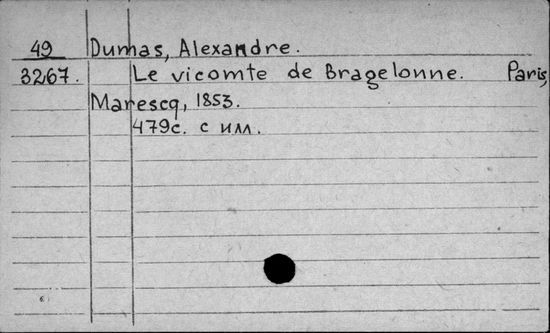 49 Dumas, Alexandre.
3267. Le vicomte de Bragelonne. Paris,
Marescq, 1853.
479с. с илл.